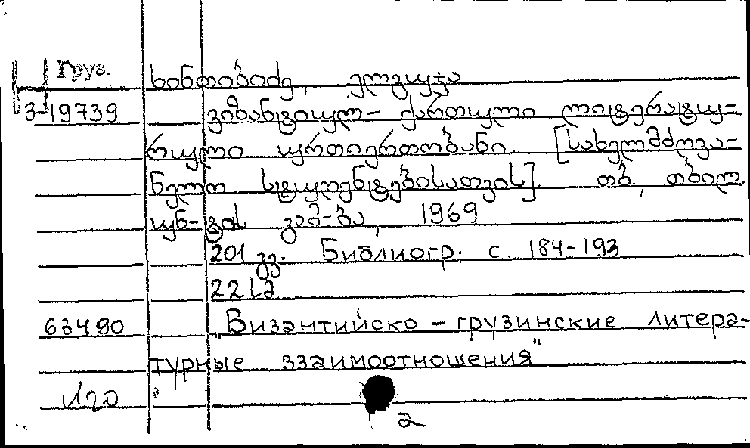 Груз. ხინთიბიძე, ელგუჯა
3-19739 ბიზანტიულ-ქართული ლიტერატუ-
რული ურთიერთობანი. [სახელმძღვა-
ნელო სტუდენტებისათვის]. თბ., თბილ.
უნ-ტის გამ-ბა, 1969
201 გვ. Библиогр. с. 184-193
221
63490 "Византийско-грузинские литера-
турные взаимоотношения"
2